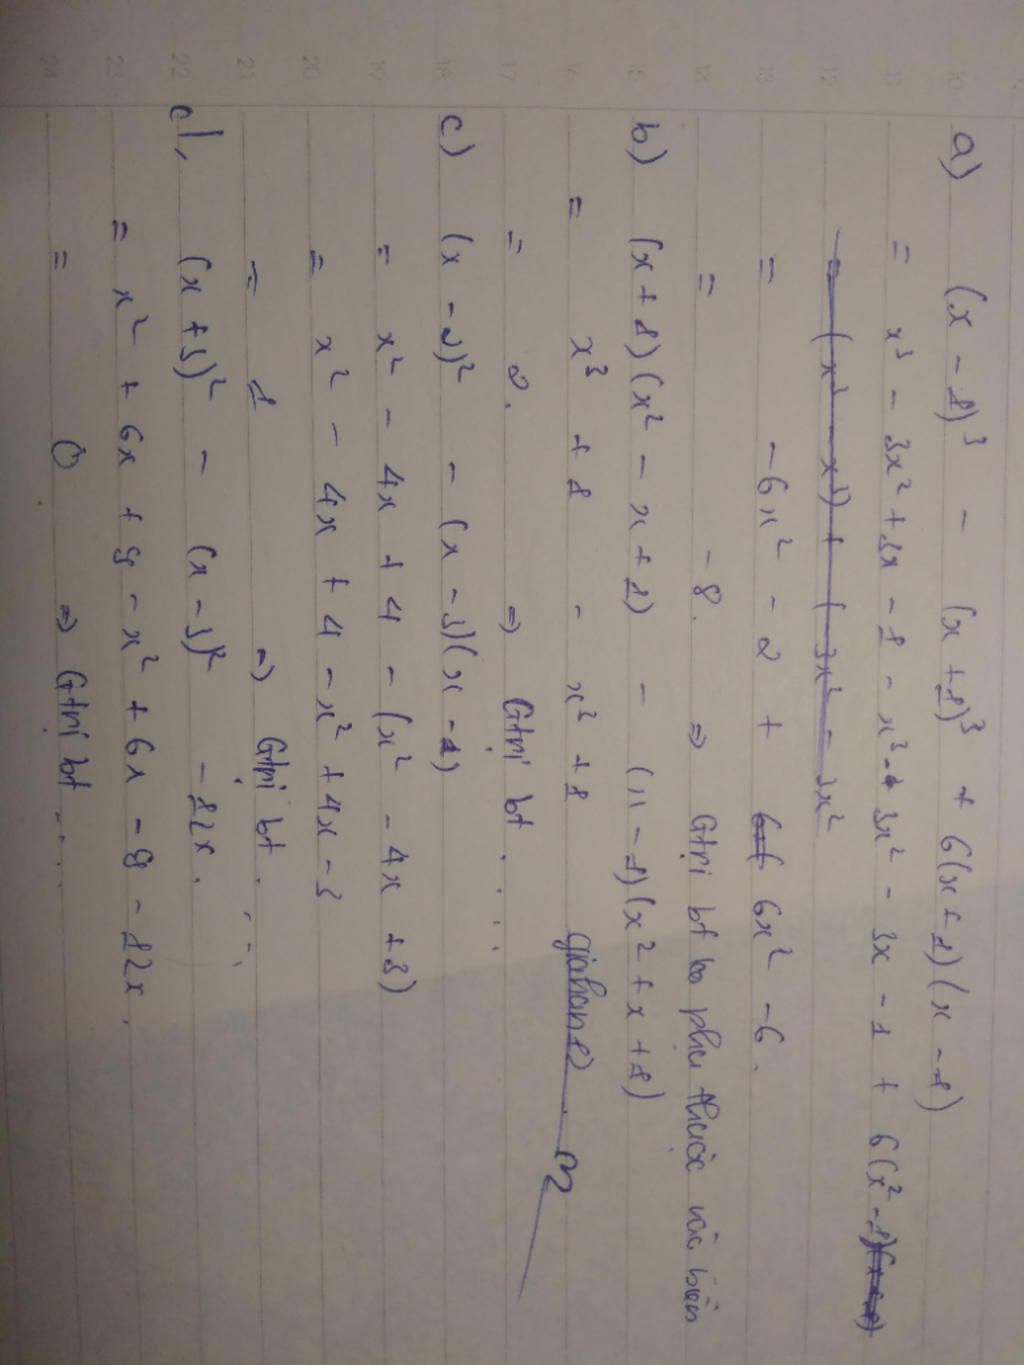 a) (x - 1)³ - (x + 1)³ + 6(x + 1)(x - 1)
= x³ - 3x² + 3x - 1 - x³ - 3x² - 3x - 1 + 6(x² - 1)
= -6x² - 2 + 6x² - 6.
= -8. => Gtrị bt ko phụ thuộc vào biến
b) (x + 1)(x² - x + 1) - (x - 1)(x² + x + 1)
= x³ + 1 - x³ + 1
giahan12
= 2. => Gtrị bt . . . .
c) (x - 2)² - (x - 3)(x - 1)
= x² - 4x + 4 - (x² - 4x + 3)
= x² - 4x + 4 - x² + 4x - 3
= 1 => Gtrị bt . . . .
d, (x + 3)² - (x - 3)² - 12x .
= x² + 6x + 9 - x² + 6x - 9 - 12x .
= 0 => Gtrị bt . . . .